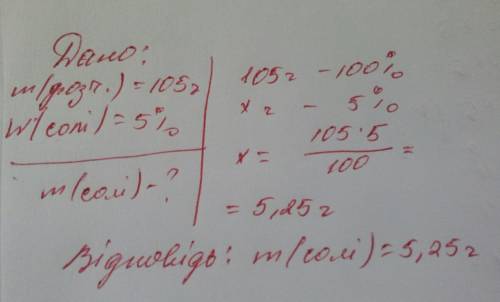 Дано:
m(розч.) = 105г
W(солі) = 5%
m(солі) - ?
105г - 100%
x г - 5%
x = 105·5 / 100 =
= 5,25г
Відповідь: m(солі) = 5,25г